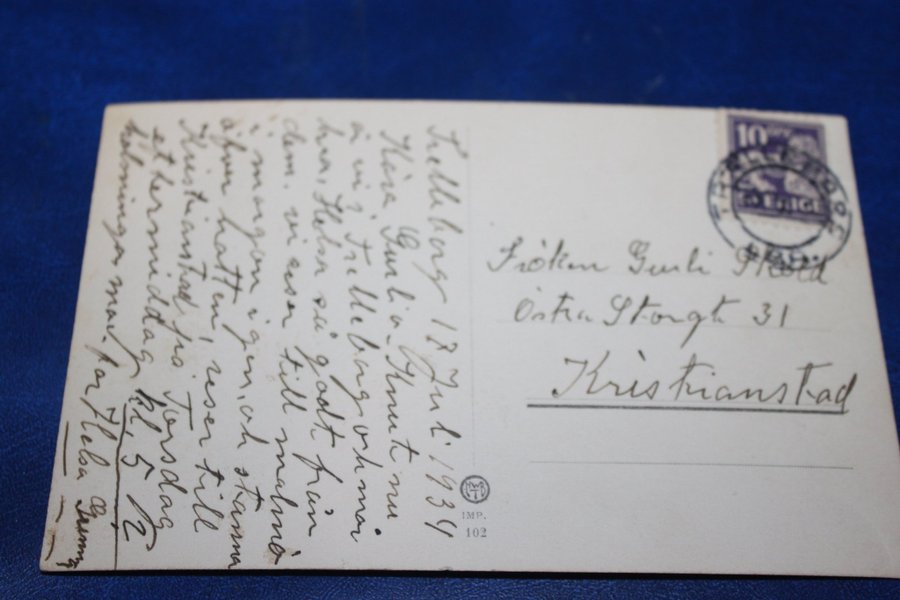 Trelleborg 17 Juli 1934
Kära Gurli o. Knut nu
ä vi i Trelleborg och mår
bra, Helsa så godt från
dem. vi reser till malmö
i morgon igen, och stanna
öfver natten, reser till
Kristianstad, på Torsdag
ethermiddag kl, 5 1/2
hälsningar mor. far Helsa
10
SVERIGE
Fröken Gurli Sköld
Östra Storgt 31
Kristianstad
IMP.
102